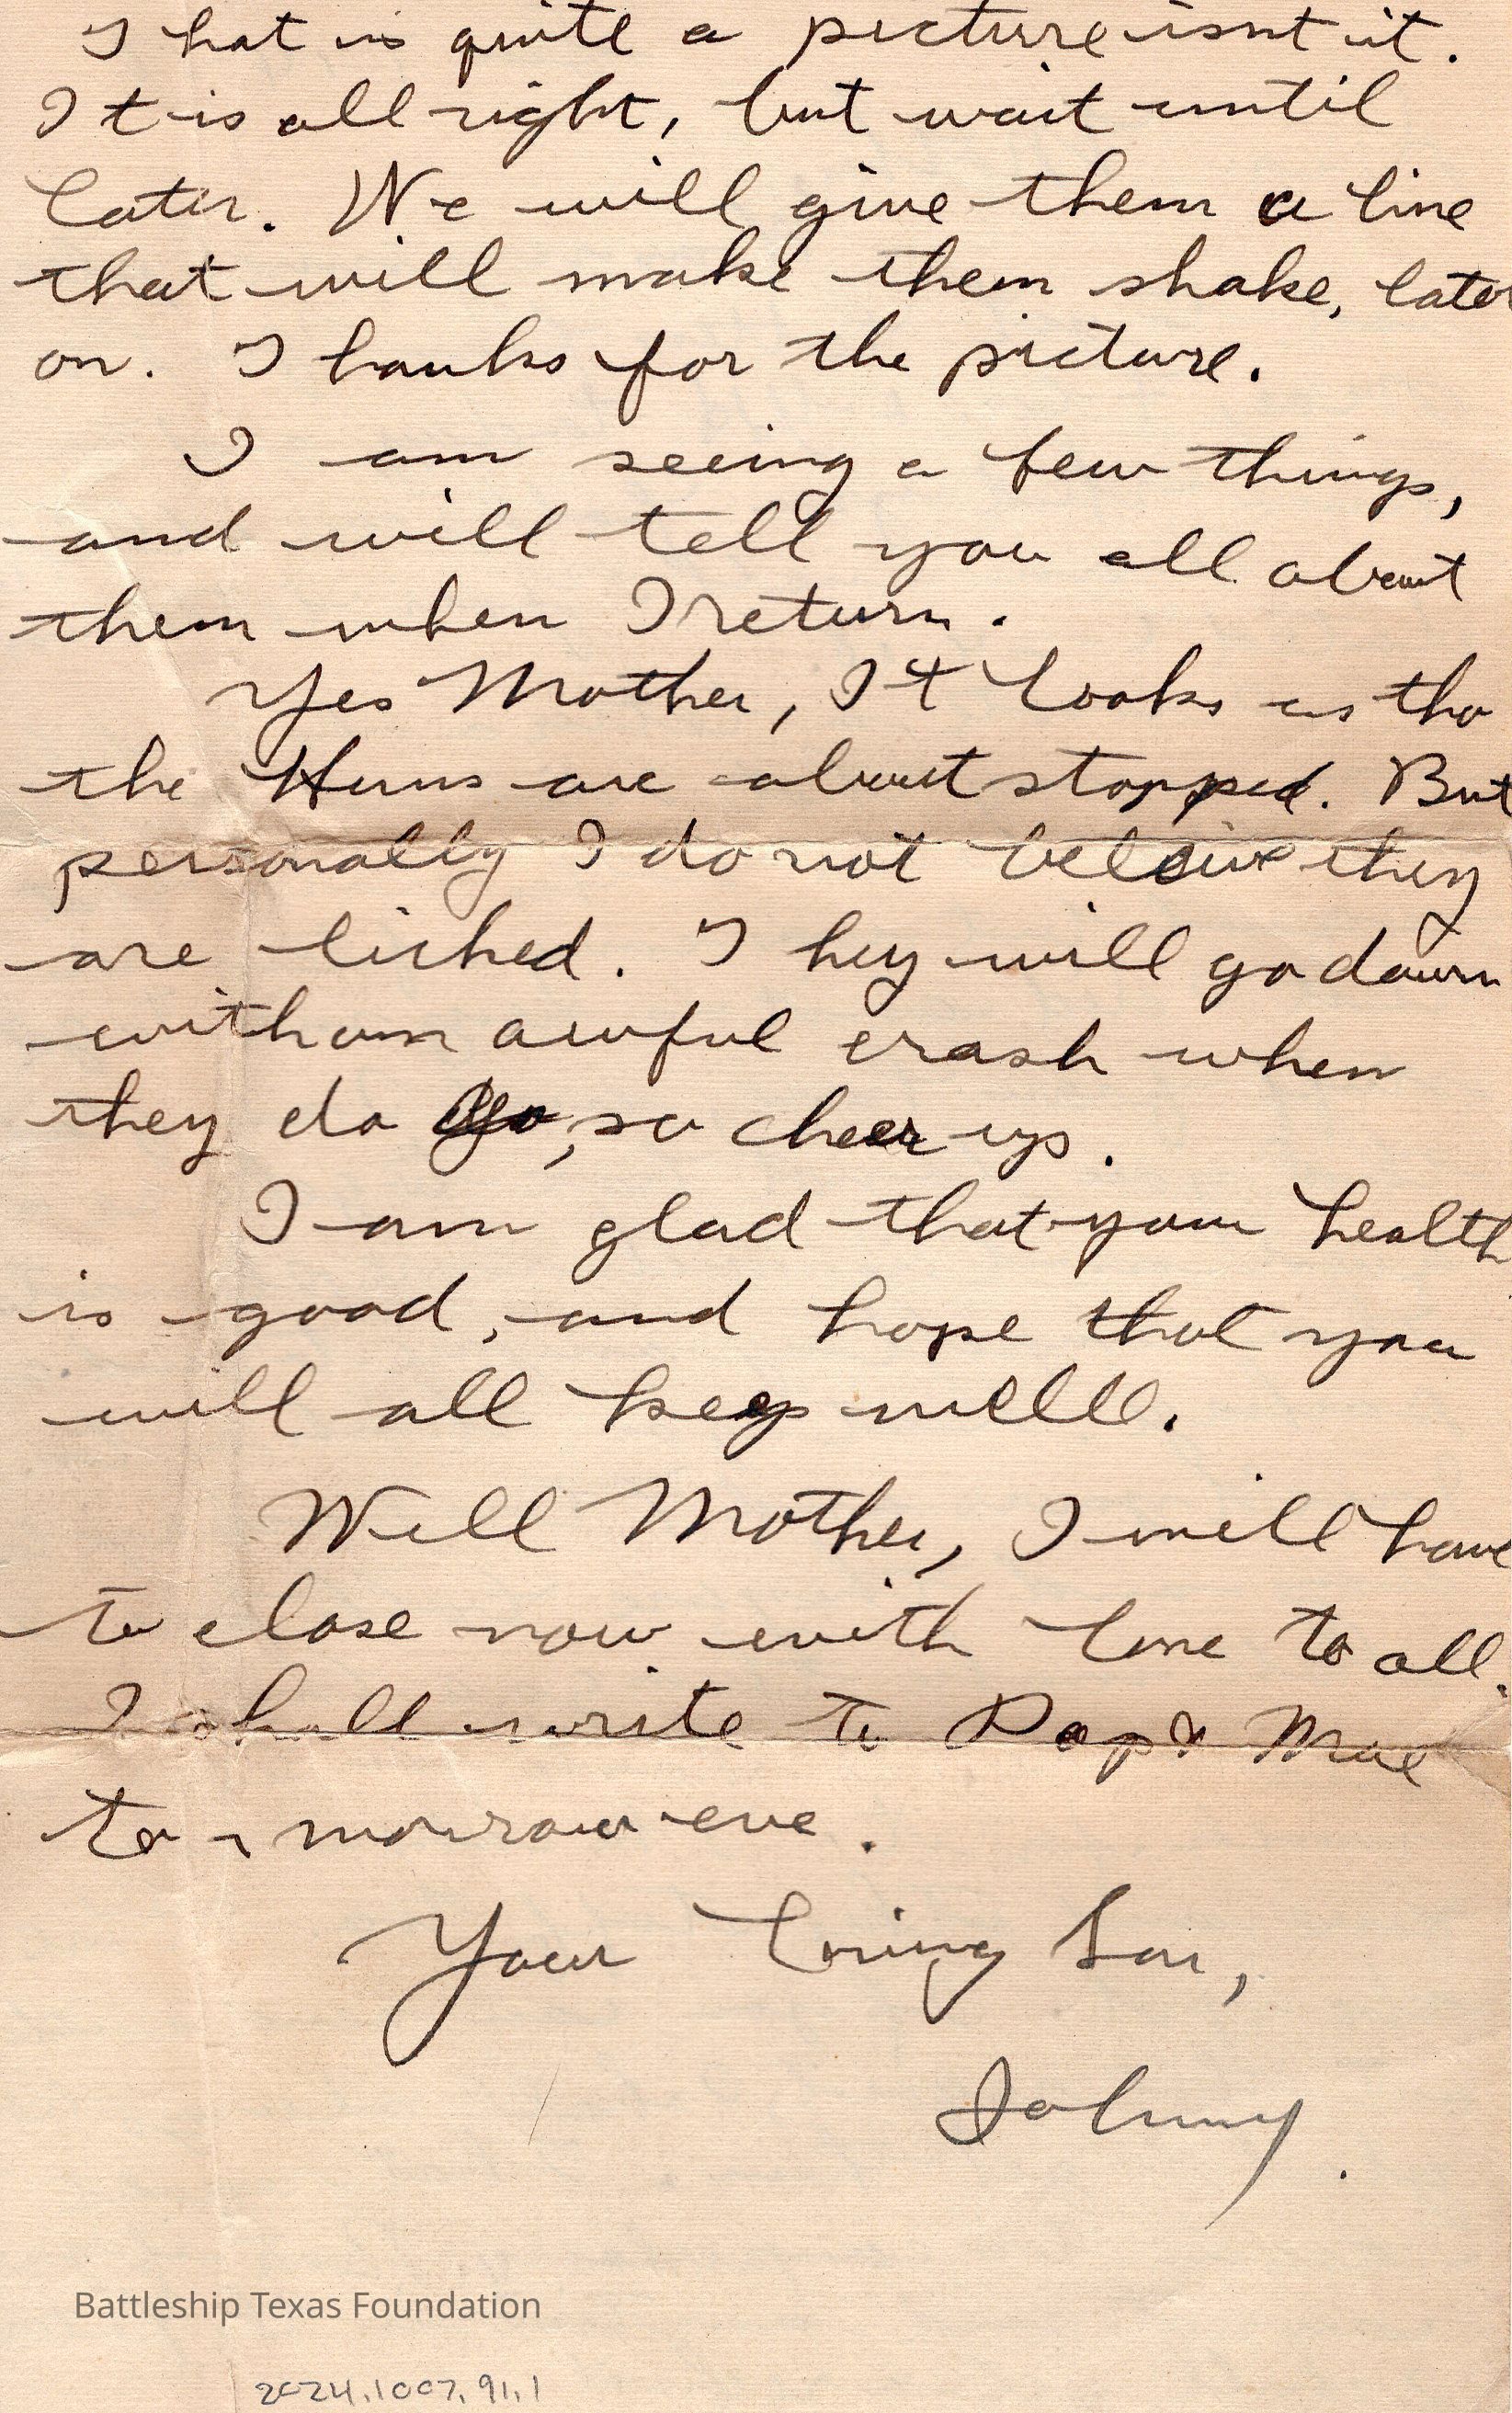 That is quite a picture isnt it.
It is all right, but wait until
later. We will give them a line
that will make them shake, later
on. Thanks for the picture.
I am seeing a few things,
and will tell you all about
them when I return.
Yes Mother, It looks as tho
the Huns are about stopped. But
personally I do not beleive they
are licked. They will go down
with an awful crash when
they do go, so cheer up.
I am glad that your health
is good, and hope that you
will all keep welll.
Well Mother, I will have
to close now with love to all.
I shall write to Pop & Mae
to-morrow eve.
Your loving Son,
Johnny.
Battleship Texas Foundation
2024.1007.91.1